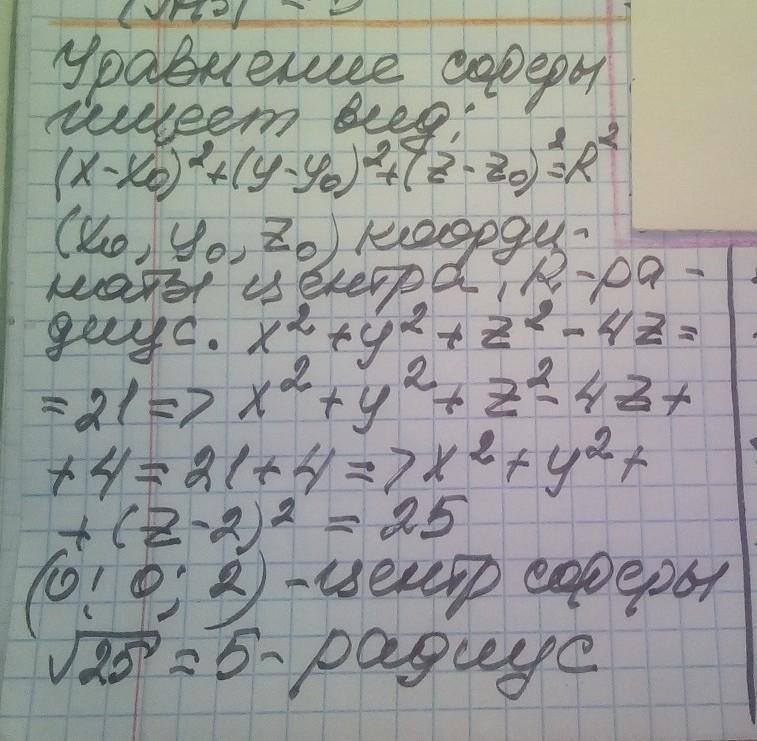 Уравнение сферы
имеет вид:
(x-x₀)²+(y-y₀)²+(z-z₀)²=R²
(x₀, y₀, z₀) коорди-
наты центра, R-ра-
диус. x²+y²+z²-4z=
=21=> x²+y²+z²-4z+
+4=21+4=>x²+y²+
+(z-2)²=25
(0; 0; 2)-центр сферы
√25=5-радиус